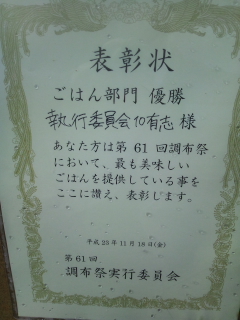 表彰状
ごはん部門 優勝
執行委員会10有志 様
あなた方は第 61 回調布祭
において、最も美味しい
ごはんを提供している事を
ここに讃え、表彰します。
平成 23 年 11 月 18 日(金)
第 61 回
調布祭実行委員会